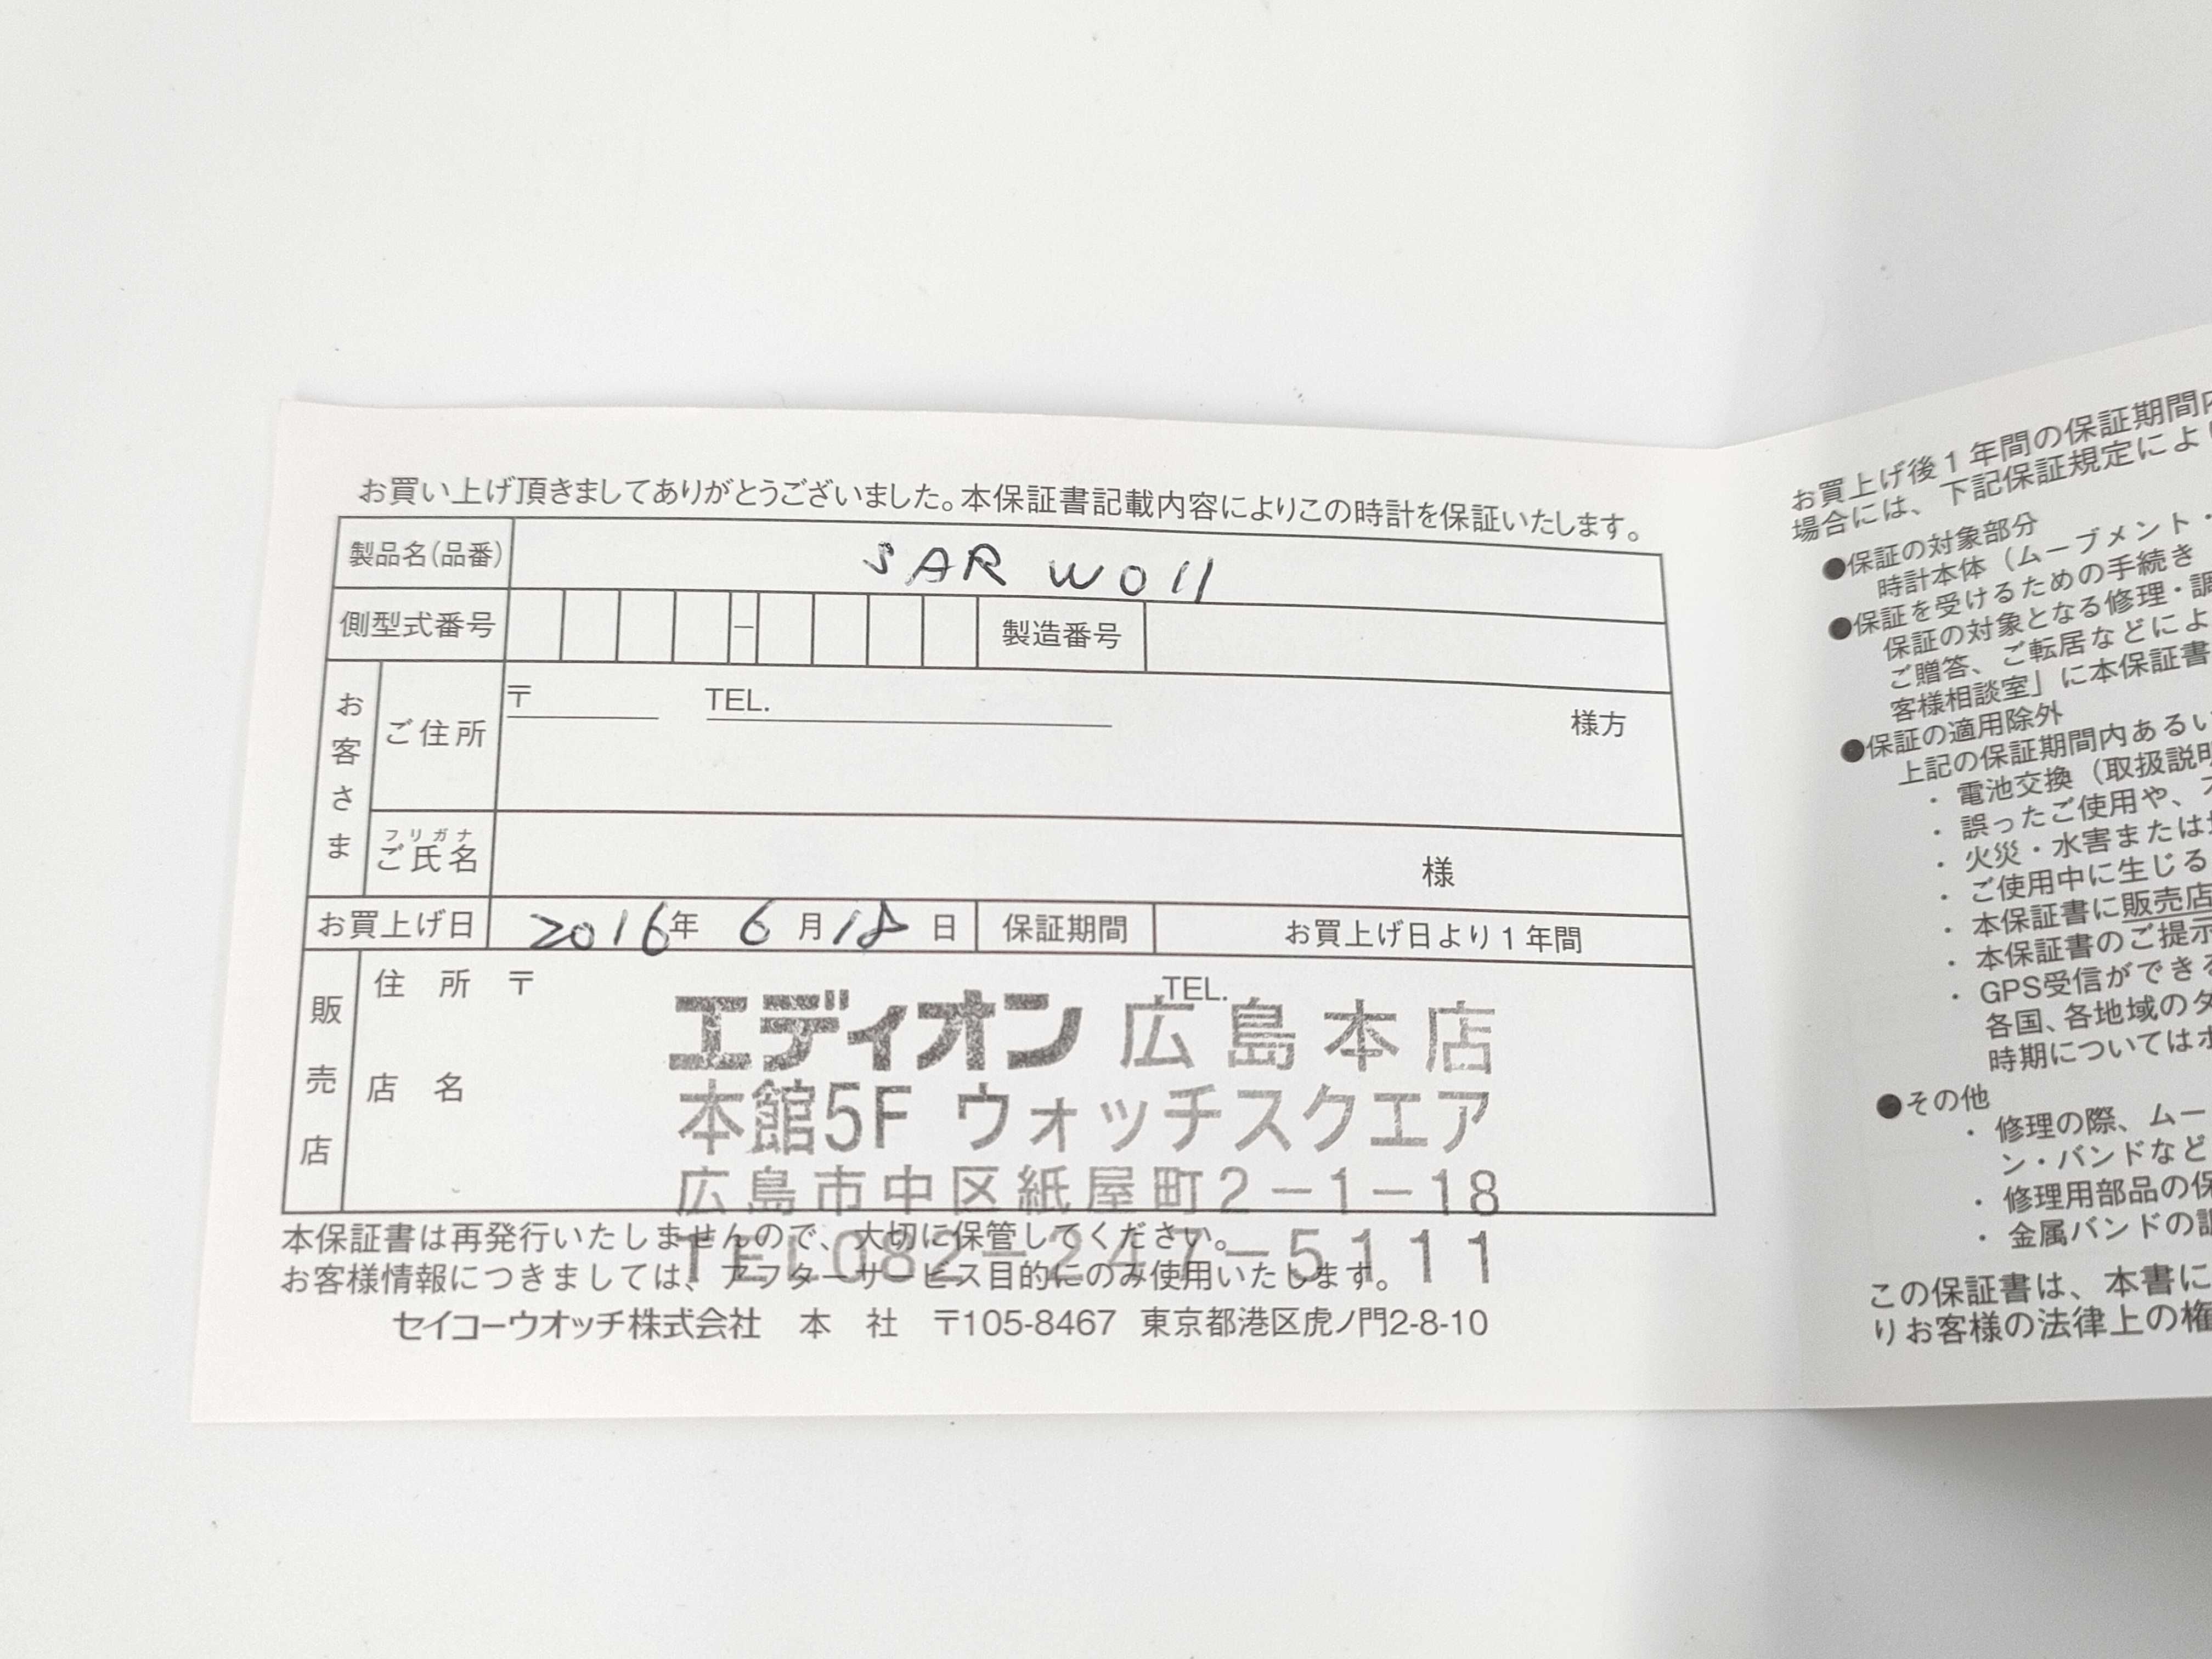 お買い上げ頂きましてありがとうございました。本保証書記載内容によりこの時計を保証いたします。
製品名(品番) SARW011
側型式番号 － 製造番号
お客さま
ご住所 〒 TEL. 様方
フリガナ
ご氏名 様
お買上げ日 2016年 6月18日 保証期間 お買上げ日より1年間
販売店
住 所 〒 TEL.
店 名
エディオン 広島本店
本館5F ウォッチスクエア
広島市中区紙屋町2－1－18
TEL082－247－5111
本保証書は再発行いたしませんので、大切に保管してください。
お客様情報につきましては、アフターサービス目的にのみ使用いたします。
セイコーウオッチ株式会社 本 社 〒105-8467 東京都港区虎ノ門2-8-10
お買上げ後1年間の保証期間
場合には、下記保証規定によ
●保証の対象部分
時計本体（ムーブメント・
●保証を受けるための手続き
保証の対象となる修理・調
ご贈答、ご転居などによ
客様相談室」に本保証書
●保証の適用除外
上記の保証期間内あるい
・電池交換（取扱説明
・誤ったご使用や、
・火災・水害または
・ご使用中に生じる
・本保証書に販売店
・本保証書のご提示
・GPS受信ができ
各国、各地域の
時期については
●その他
・修理の際、ムー
ン・バンドなど
・修理用部品の保
・金属バンドの調
この保証書は、本書に
りお客様の法律上の権